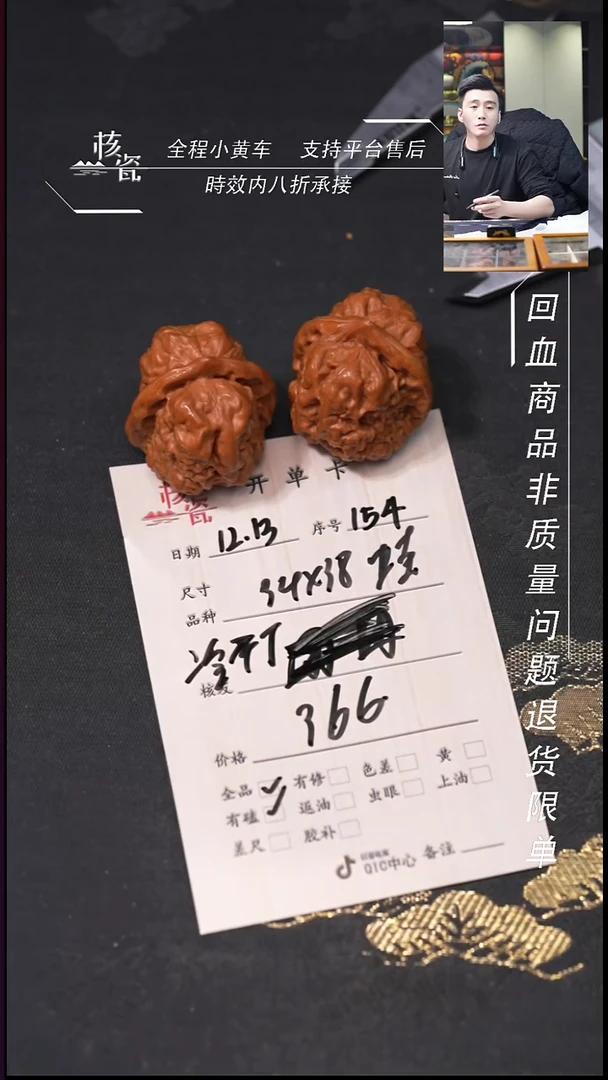 核瓷
全程小黄车 支持平台售后
時效内八折承接
回血商品非质量问题退货限单
核瓷 开单卡
日期 12.13 序号 154
尺寸 34X38
品种
冷不丁
核友
366
价格
全品 ✓ 有修 色差 黄
有磕 ✓ 返油 虫眼 上油
差尺 胶补
QIC中心 备注